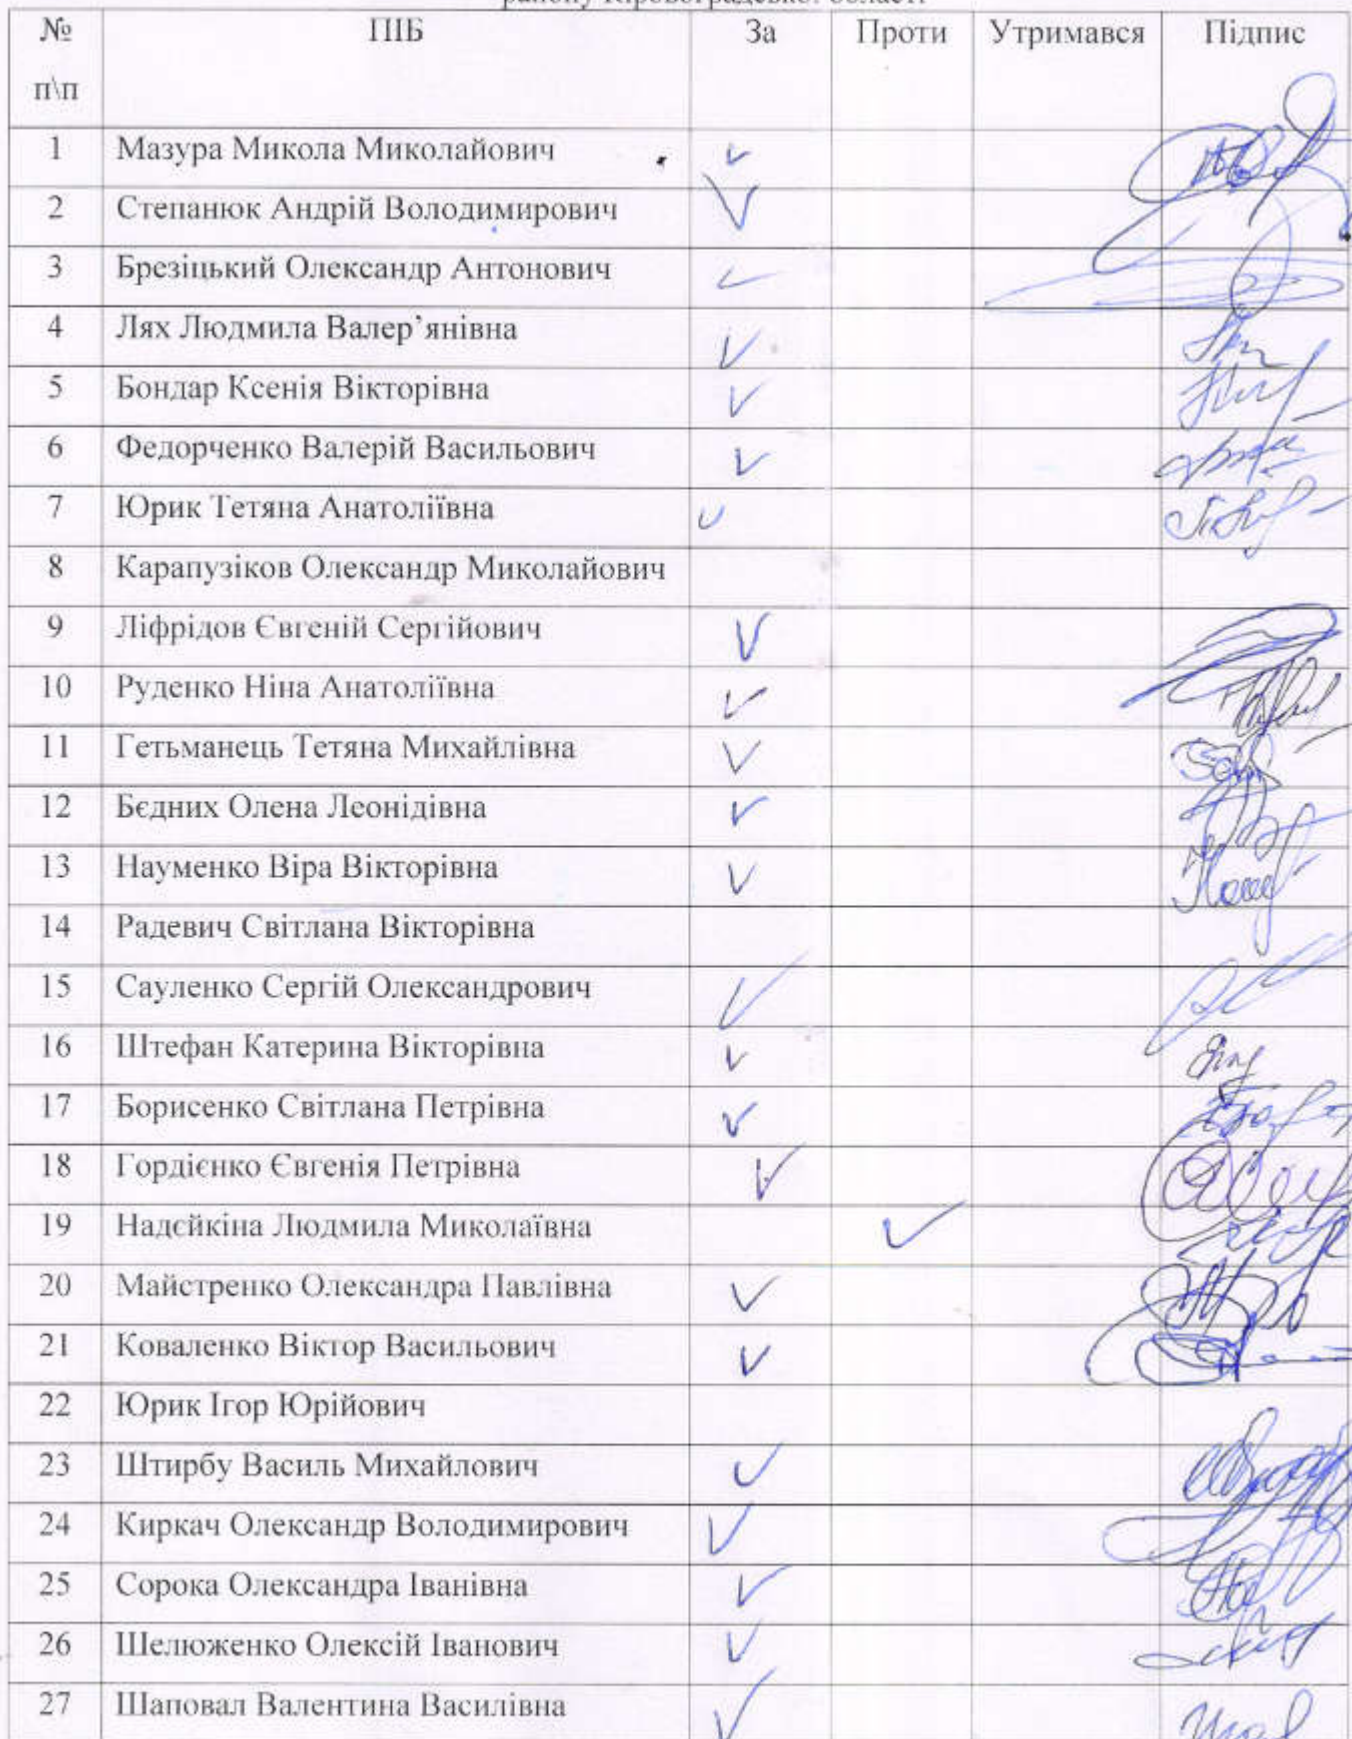 району Кіровоградської області
№ п\п ПІБ За Проти Утримався Підпис
1 Мазура Микола Миколайович
2 Степанюк Андрій Володимирович
3 Брезіцький Олександр Антонович
4 Лях Людмила Валер’янівна
5 Бондар Ксенія Вікторівна
6 Федорченко Валерій Васильович
7 Юрик Тетяна Анатоліївна
8 Карапузіков Олександр Миколайович
9 Ліфрідов Євгеній Сергійович
10 Руденко Ніна Анатоліївна
11 Гетьманець Тетяна Михайлівна
12 Бєдних Олена Леонідівна
13 Науменко Віра Вікторівна
14 Радевич Світлана Вікторівна
15 Сауленко Сергій Олександрович
16 Штефан Катерина Вікторівна
17 Борисенко Світлана Петрівна
18 Гордієнко Євгенія Петрівна
19 Надєйкіна Людмила Миколаївна
20 Майстренко Олександра Павлівна
21 Коваленко Віктор Васильович
22 Юрик Ігор Юрійович
23 Штирбу Василь Михайлович
24 Киркач Олександр Володимирович
25 Сорока Олександра Іванівна
26 Шелюженко Олексій Іванович
27 Шаповал Валентина Василівна